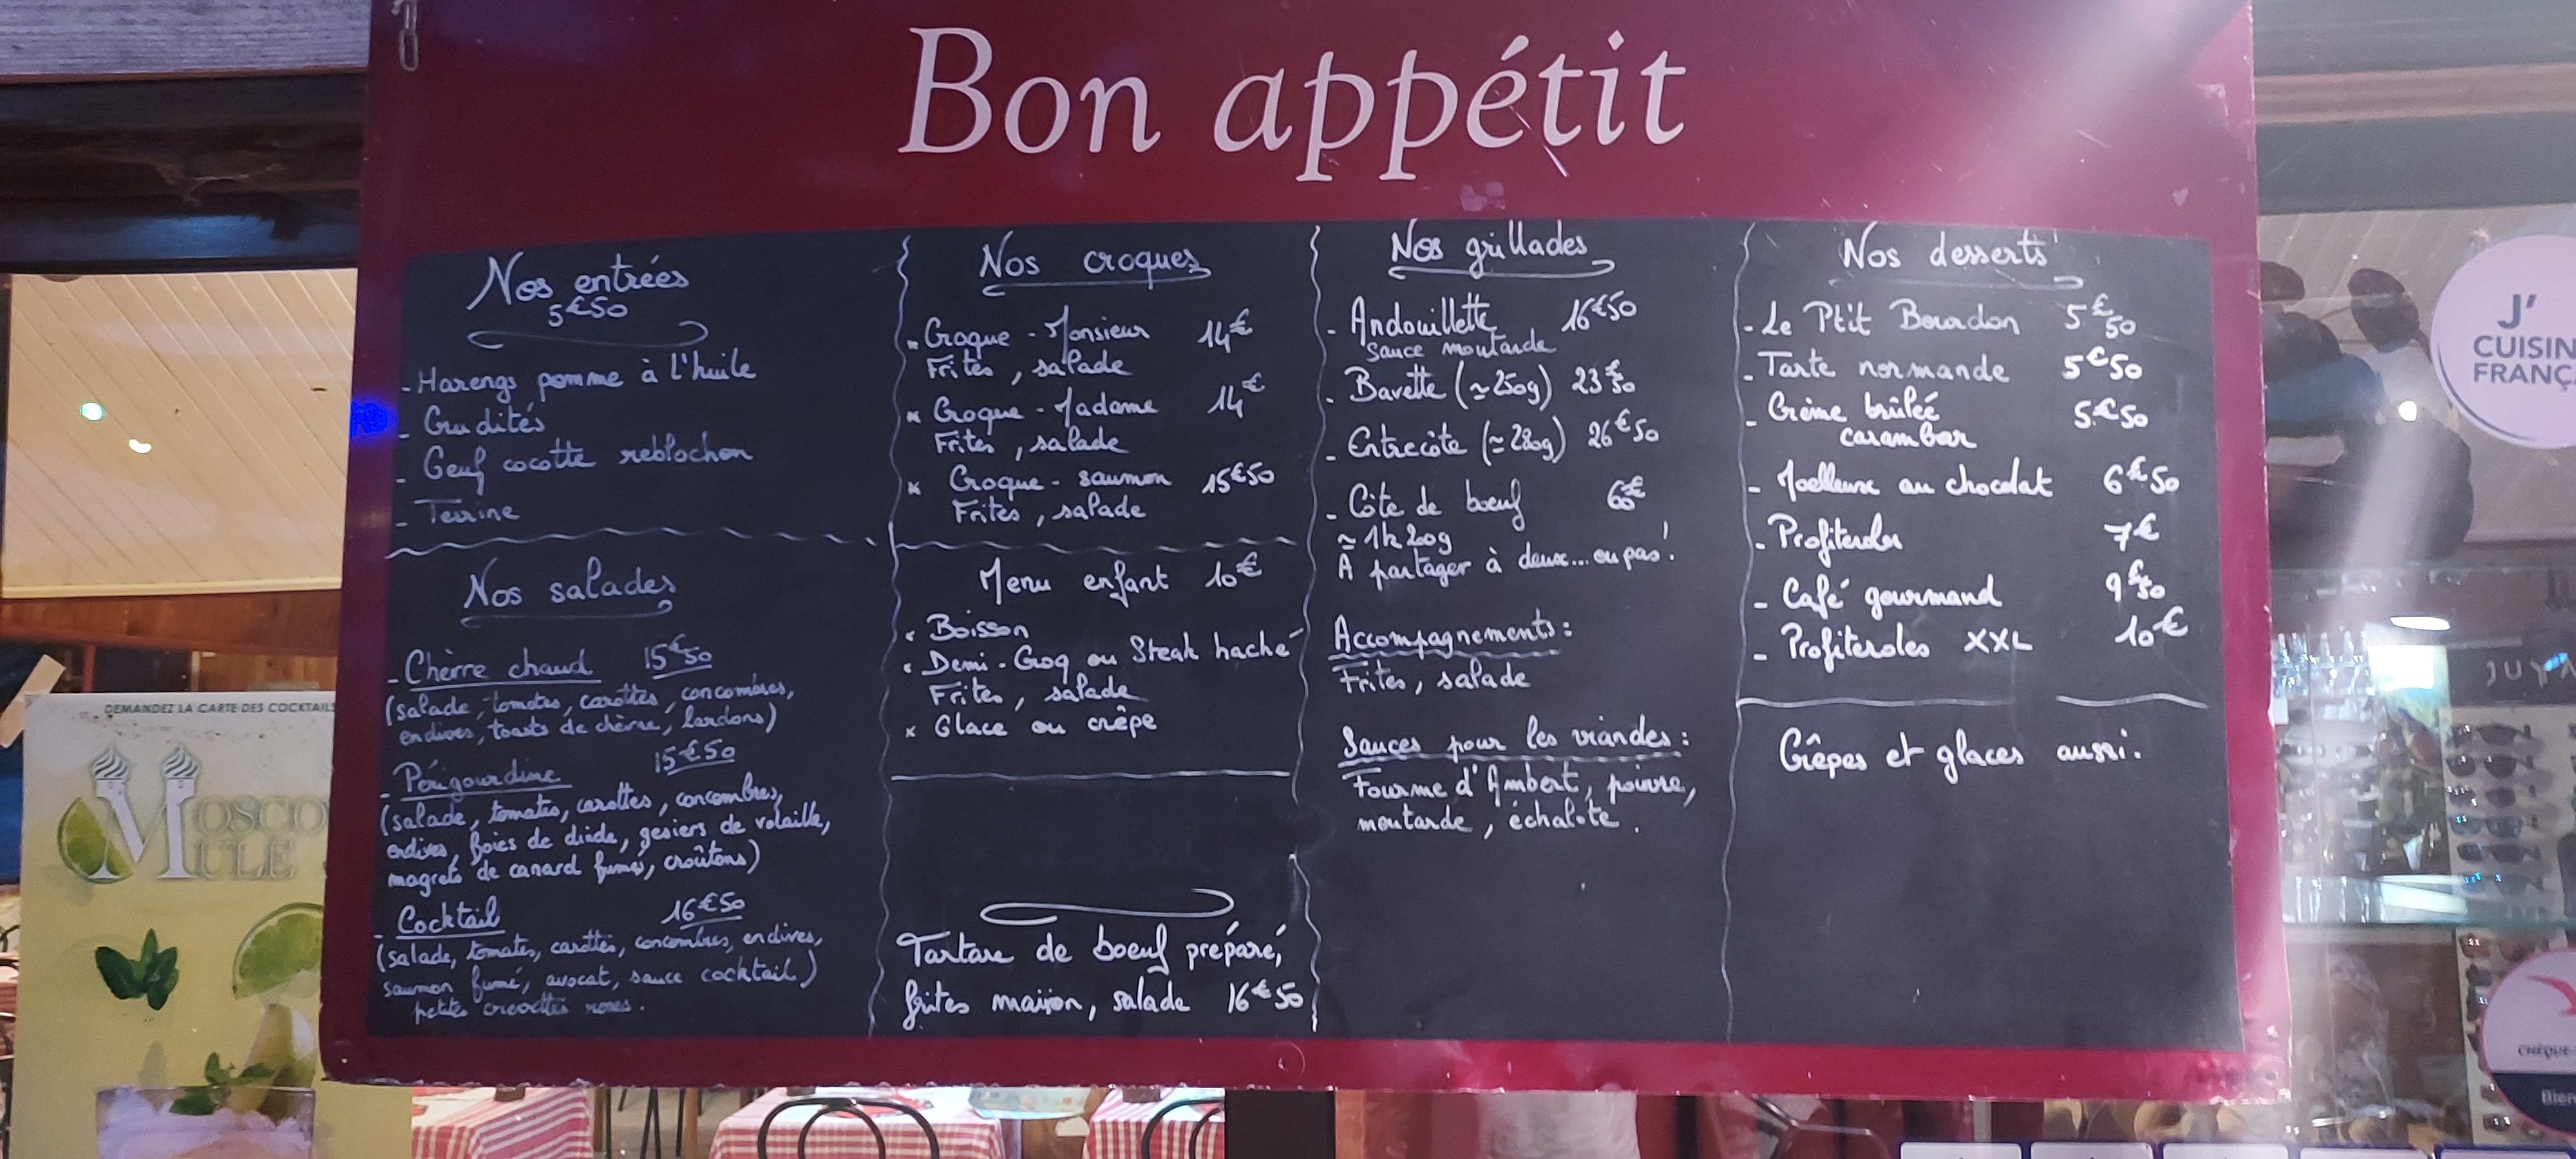 Bon appétit
Nos entrées
5€50
- Harengs pomme à l'huile
- Crudités
- Oeuf cocotte reblochon
- Terrine
Nos salades
- Chèvre chaud 15€50
(salade, tomates, carottes, concombres,
endives, toasts de chèvre, lardons)
- Périgourdine 15€50
(salade, tomates, carottes, concombres,
endives, foies de dinde, gesiers de volaille,
magrets de canard fumés, croûtons)
- Cocktail 16€50
(salade, tomates, carottes, concombres, endives,
saumon fumé, avocat, sauce cocktail)
petites crevettes roses.
Nos croques
x Croque-Monsieur 14€
Frites, salade
x Croque-Madame 14€
Frites, salade
x Croque-saumon 15€50
Frites, salade
Menu enfant 10€
x Boisson
x Demi-Croq ou Steak haché
Frites, salade
x Glace ou crêpe
Tartare de boeuf préparé,
frites maison, salade 16€50
Nos grillades
- Andouillette 16€50
Sauce moutarde
- Bavette (≃250g) 23€50
- Entrecôte (≃280g) 26€50
- Côte de boeuf 60€
≃ 1k200g
À partager à deux... ou pas!
Accompagnements:
Frites, salade
Sauces pour les viandes:
Fourme d'Ambert, poivre,
moutarde, échalote.
Nos desserts
- Le Ptit Bourdon 5€50
- Tarte normande 5€50
- Crème brûlée 5€50
carambar
- Moelleux au chocolat 6€50
- Profiteroles 7€
- Café gourmand 9€50
- Profiteroles XXL 10€
Crêpes et glaces aussi.
DEMANDEZ LA CARTE DES COCKTAILS
MOSCO
MULE
J'
CUISIN
FRANÇ
CHÈQUE
Bien